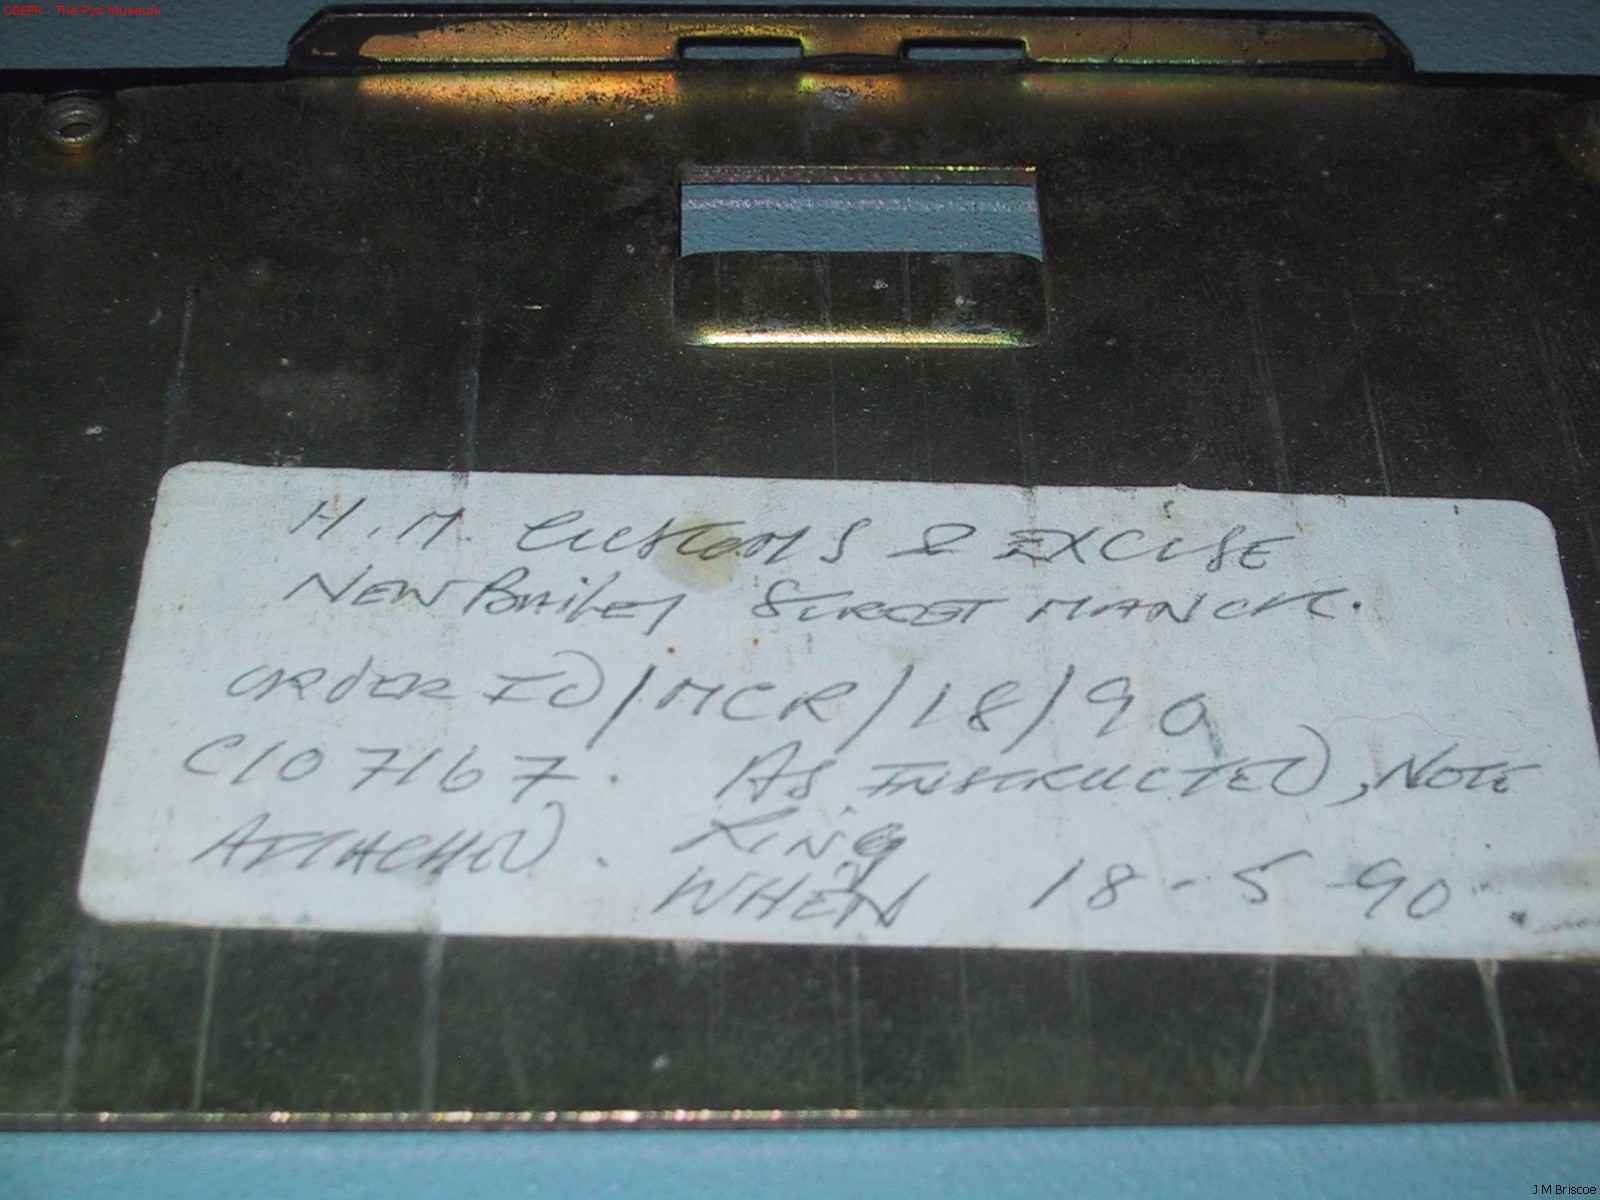 G8EPR - The Pye Museum
H.M. CUSTOMS & EXCISE
NEW BAILEY STREET MANCR.
ORDER ID/MCR/18/90
C107167. AS INSTRUCTED, NOTE
ATTACHED. RING
WHEN 18-5-90
J M Briscoe